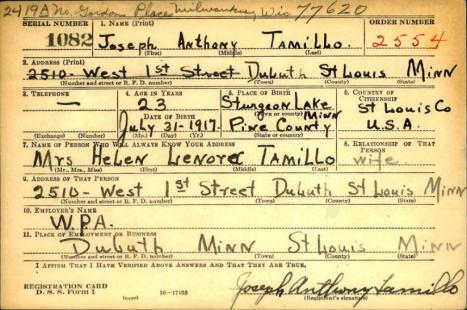 2419A No. Gordon Place Milwaukee, Wis 77620
SERIAL NUMBER 1. NAME (Print) ORDER NUMBER
1082 Joseph Anthony Tamillo. 2554
(First) (Middle) (Last)
2. ADDRESS (Print)
2510- West 1st Street Duluth St Louis Minn
(Number and street or R. F. D. number) (Town) (County) (State)
3. TELEPHONE 4. AGE IN YEARS 5. PLACE OF BIRTH 6. COUNTRY OF CITIZENSHIP
— 23 Sturgeon Lake Minn St Louis Co
DATE OF BIRTH (Town or county)
July 31-1917. Pine County U.S.A.
(Exchange) (Number) (Mo.) (Day) (Yr.) (State or country)
7. NAME OF PERSON WHO WILL ALWAYS KNOW YOUR ADDRESS 8. RELATIONSHIP OF THAT PERSON
Mrs Helen Lenore Tamillo wife
(Mr., Mrs., Miss) (First) (Middle) (Last)
9. ADDRESS OF THAT PERSON
2510- West 1st Street Duluth St Louis Minn
(Number and street or R. F. D. number) (Town) (County) (State)
10. EMPLOYER'S NAME
W.P.A.
11. PLACE OF EMPLOYMENT OR BUSINESS
Duluth Minn St Louis Minn
(Number and street or R. F. D. number) (Town) (County) (State)
I AFFIRM THAT I HAVE VERIFIED ABOVE ANSWERS AND THAT THEY ARE TRUE.
REGISTRATION CARD
D. S. S. Form 1 (over) 16—17105
Joseph Anthony Tamillo
(Registrant's signature)